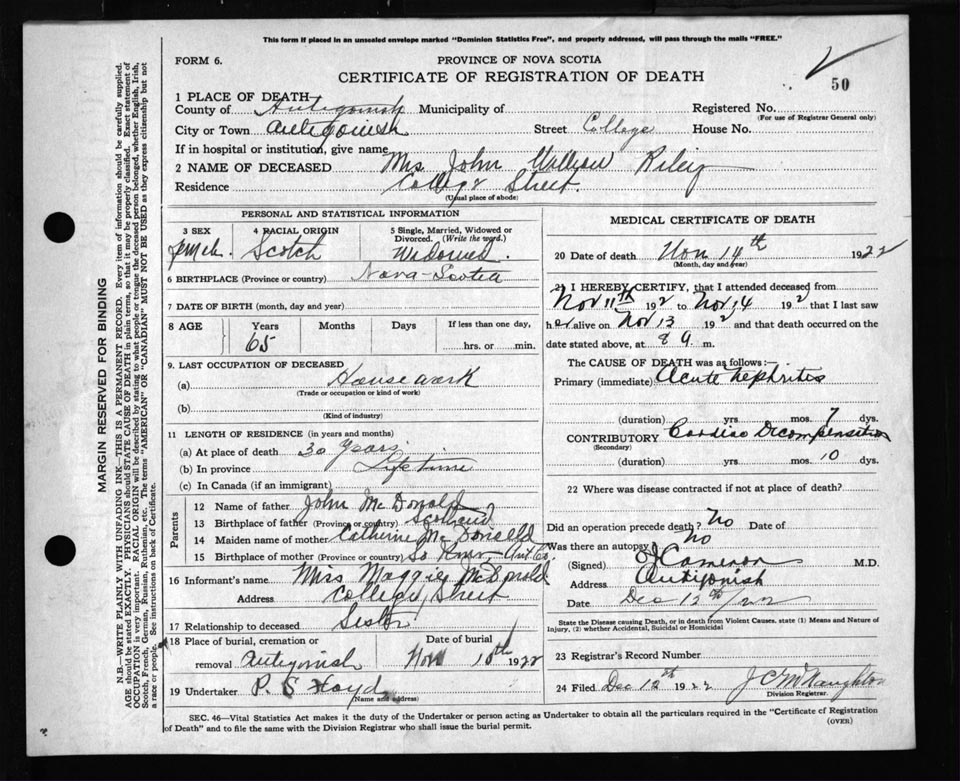 This form if placed in an unsealed envelope marked "Dominion Statistics Free", and properly addressed, will pass through the mails "FREE."
FORM 6.
PROVINCE OF NOVA SCOTIA
CERTIFICATE OF REGISTRATION OF DEATH
50
1 PLACE OF DEATH
County of Antigonish Municipality of
Registered No.
(For use of Registrar General only)
City or Town Antigonish Street College House No.
If in hospital or institution, give name
2 NAME OF DECEASED Mrs John William Riley
Residence College Street.
(Usual place of abode)
PERSONAL AND STATISTICAL INFORMATION
3 SEX
Female.
4 RACIAL ORIGIN
Scotch
5 Single, Married, Widowed or Divorced. (Write the word.)
Widowed.
6 BIRTHPLACE (Province or country) Nova-Scotia
7 DATE OF BIRTH (month, day and year)
8 AGE Years Months Days If less than one day,
65 hrs. or min.
9. LAST OCCUPATION OF DECEASED
(a) House work
(Trade or occupation or kind of work)
(b)
(Kind of industry)
11 LENGTH OF RESIDENCE (in years and months)
(a) At place of death 30 years
(b) In province Lifetime
(c) In Canada (if an immigrant)
Parents
12 Name of father John McDonald
13 Birthplace of father (Province or country) Scotland
14 Maiden name of mother Catherine McDonald
15 Birthplace of mother (Province or country) So River Ant. Co.
16 Informant's name Miss Maggie McDonald
Address College Street
17 Relationship to deceased Sister
18 Place of burial, cremation or removal Antigonish
Date of burial
Nov 1922
19 Undertaker P. S.
(Name and address)
MEDICAL CERTIFICATE OF DEATH
20 Date of death Nov 14th 1922
(Month, day and year)
21 I HEREBY CERTIFY, that I attended deceased from
Nov 11th 192 to Nov 14 192 that I last saw
her alive on Nov 13 192 and that death occurred on
date stated above, at 8 a. m.
The CAUSE OF DEATH was as follows:—
Primary (immediate) Acute nephritis
(duration) yrs. mos. 7 dys.
CONTRIBUTORY Cardiac Decompensation
(Secondary)
(duration) yrs. mos. 10 dys.
22 Where was disease contracted if not at place of death?
Did an operation precede death? No Date of
Was there an autopsy? No
(Signed) Cameron M.D.
Address Antigonish
Date Dec 12th/22
State the Disease Causing Death, or in death from Violent Causes. state (1) Means and Nature of Injury, (2) whether Accidental, Suicidal or Homicidal
23 Registrar's Record Number
24 Filed Dec 12th 1922 J C McNaughton
Division Registrar.
SEC. 46—Vital Statistics Act makes it the duty of the Undertaker or person acting as Undertaker to obtain all the particulars required in the "Certificate of Registration of Death" and to file the same with the Division Registrar who shall issue the burial permit.
(OVER)
MARGIN RESERVED FOR BINDING
N.B.—WRITE PLAINLY WITH UNFADING INK—THIS IS A PERMANENT RECORD. Every item of information should be carefully supplied.
AGE should be stated EXACTLY. PHYSICIANS should STATE CAUSE OF DEATH in plain terms, so that it may be properly classified. Exact statement of
OCCUPATION is very important. RACIAL ORIGIN will be described by stating to what people or tongue the deceased person belonged, whether English, Irish,
Scotch, French, German, Russian, Ruthenian, etc. The terms "AMERICAN" or "CANADIAN" MUST NOT BE USED as they express citizenship but not
a race or people. See instructions on back of Certificate.